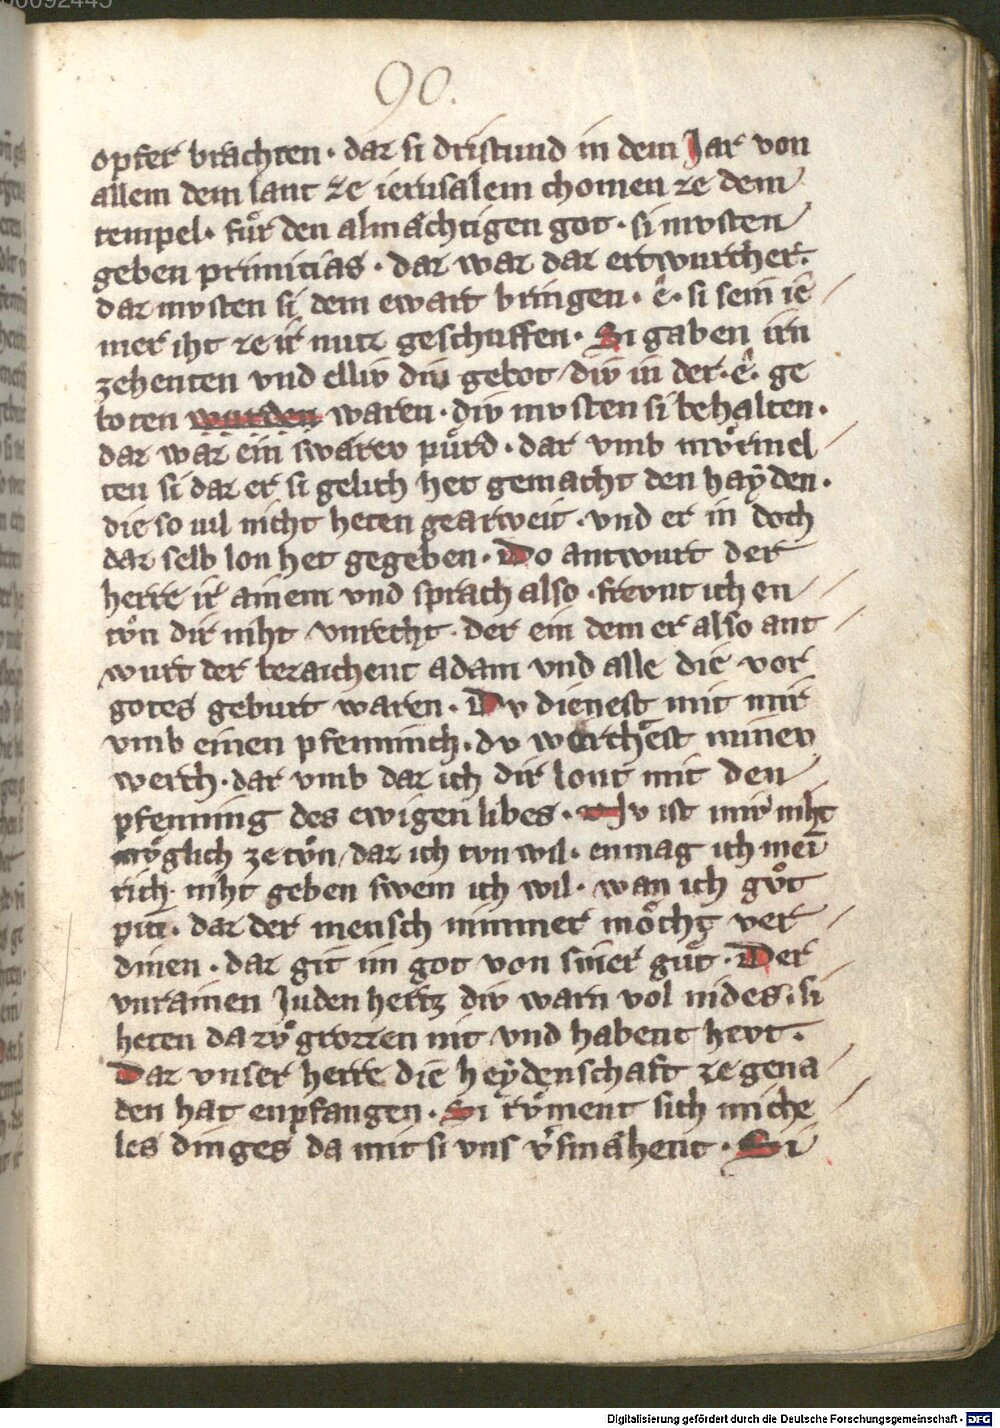 00092445
90.
opfer brachten · daz si dristund in dem Jar von
allem dem lant ze ierusalem chomen ze dem
tempel · fuͤr den almaͤchtigen got · si mvsten
geben primitias · daz waz daz ertwucher ·
daz mvsten si dem ewart bringen · ê · si sein ie
mer iht ze ir nutz geschuffen · Si gaben irn
zehenten vnd elliv diu gebot / div in der · ê · ge
boten wurden waren · div mvsten si behalten ·
daz waz ein swaͤrev puͤrd · dar vmb mvͦrmel
ten si daz er si gelich het gemacht den haẏden ·
die so uil nicht heten gearweit · vnd er in doch
daz selb lon het gegeben · Do antwurt der
herre ir ainem vnd sprach also · frevnt ich en
tvͦn dir niht vnrecht · der ein dem er also ant
wurt der bezaichent adam vnd alle die vor
gotes geburt waren · Dv dienest mit mir
vmb einen pfenninch · dv worchest minev
werch · dar vmb daz ich dir lont mit den
pfenning des ewigen libes · Jv ist mir niht
mvͤglich ze tvͦn / daz ich tvn wil · enmag ich mei̅
rich niht geben swem ich wil · wan ich gvͦt
pin · daz der mensch nimmer moͤcht ver
dinen · daz git im got von siner guͤt · Der
vnrainen Juden hertz div warn vol nides · si
heten da zvͦ grozzen nit vnd habent hevt ·
Daz vnser herre die heẏdenschaft ze gena
den hat enpfangen · Si rvͤment sich miche
les dinges da mit si vns v̕smaͤhent · Si
Digitalisierung gefördert durch die Deutsche Forschungsgemeinschaft - DFG